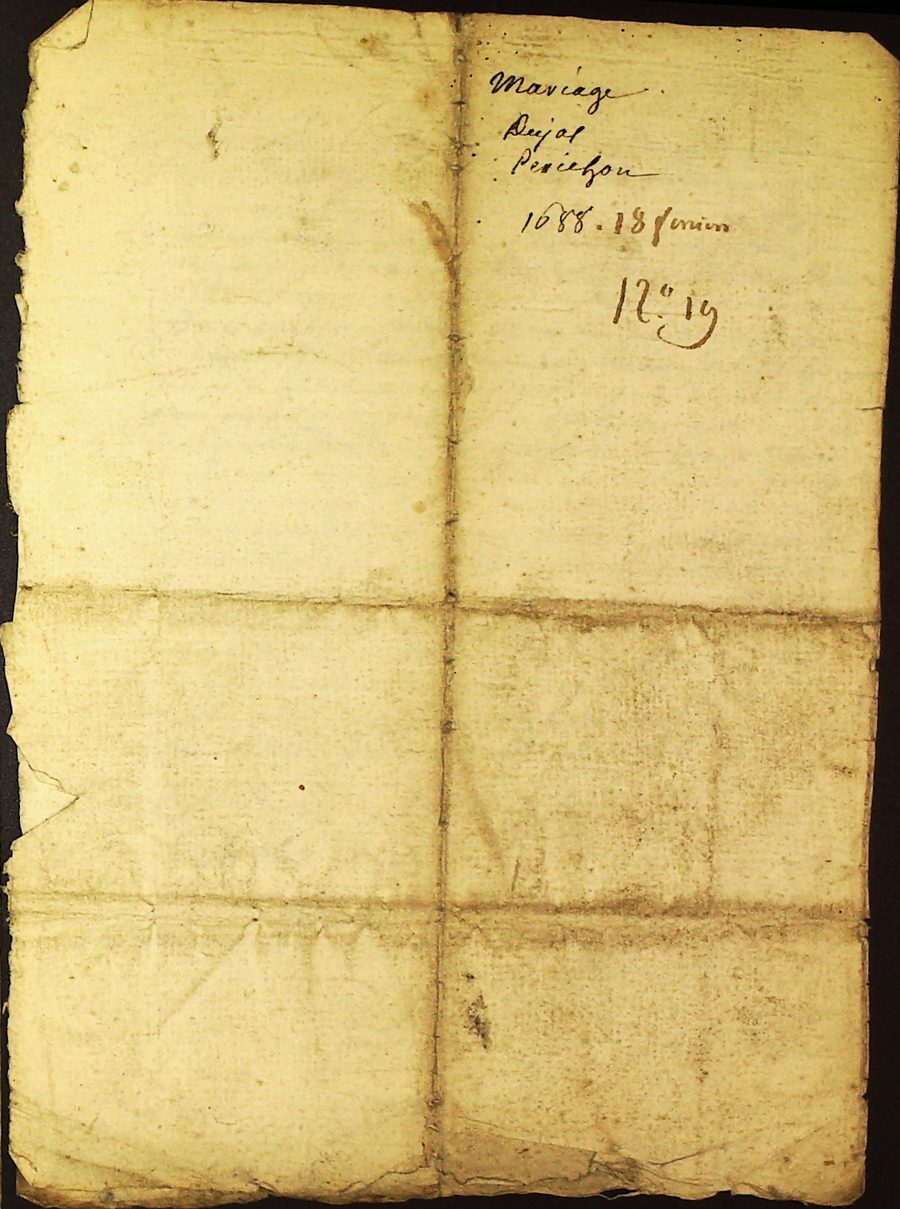 Mariage
Dujol
Perichon
1688. 18 fevrier
12º. 19